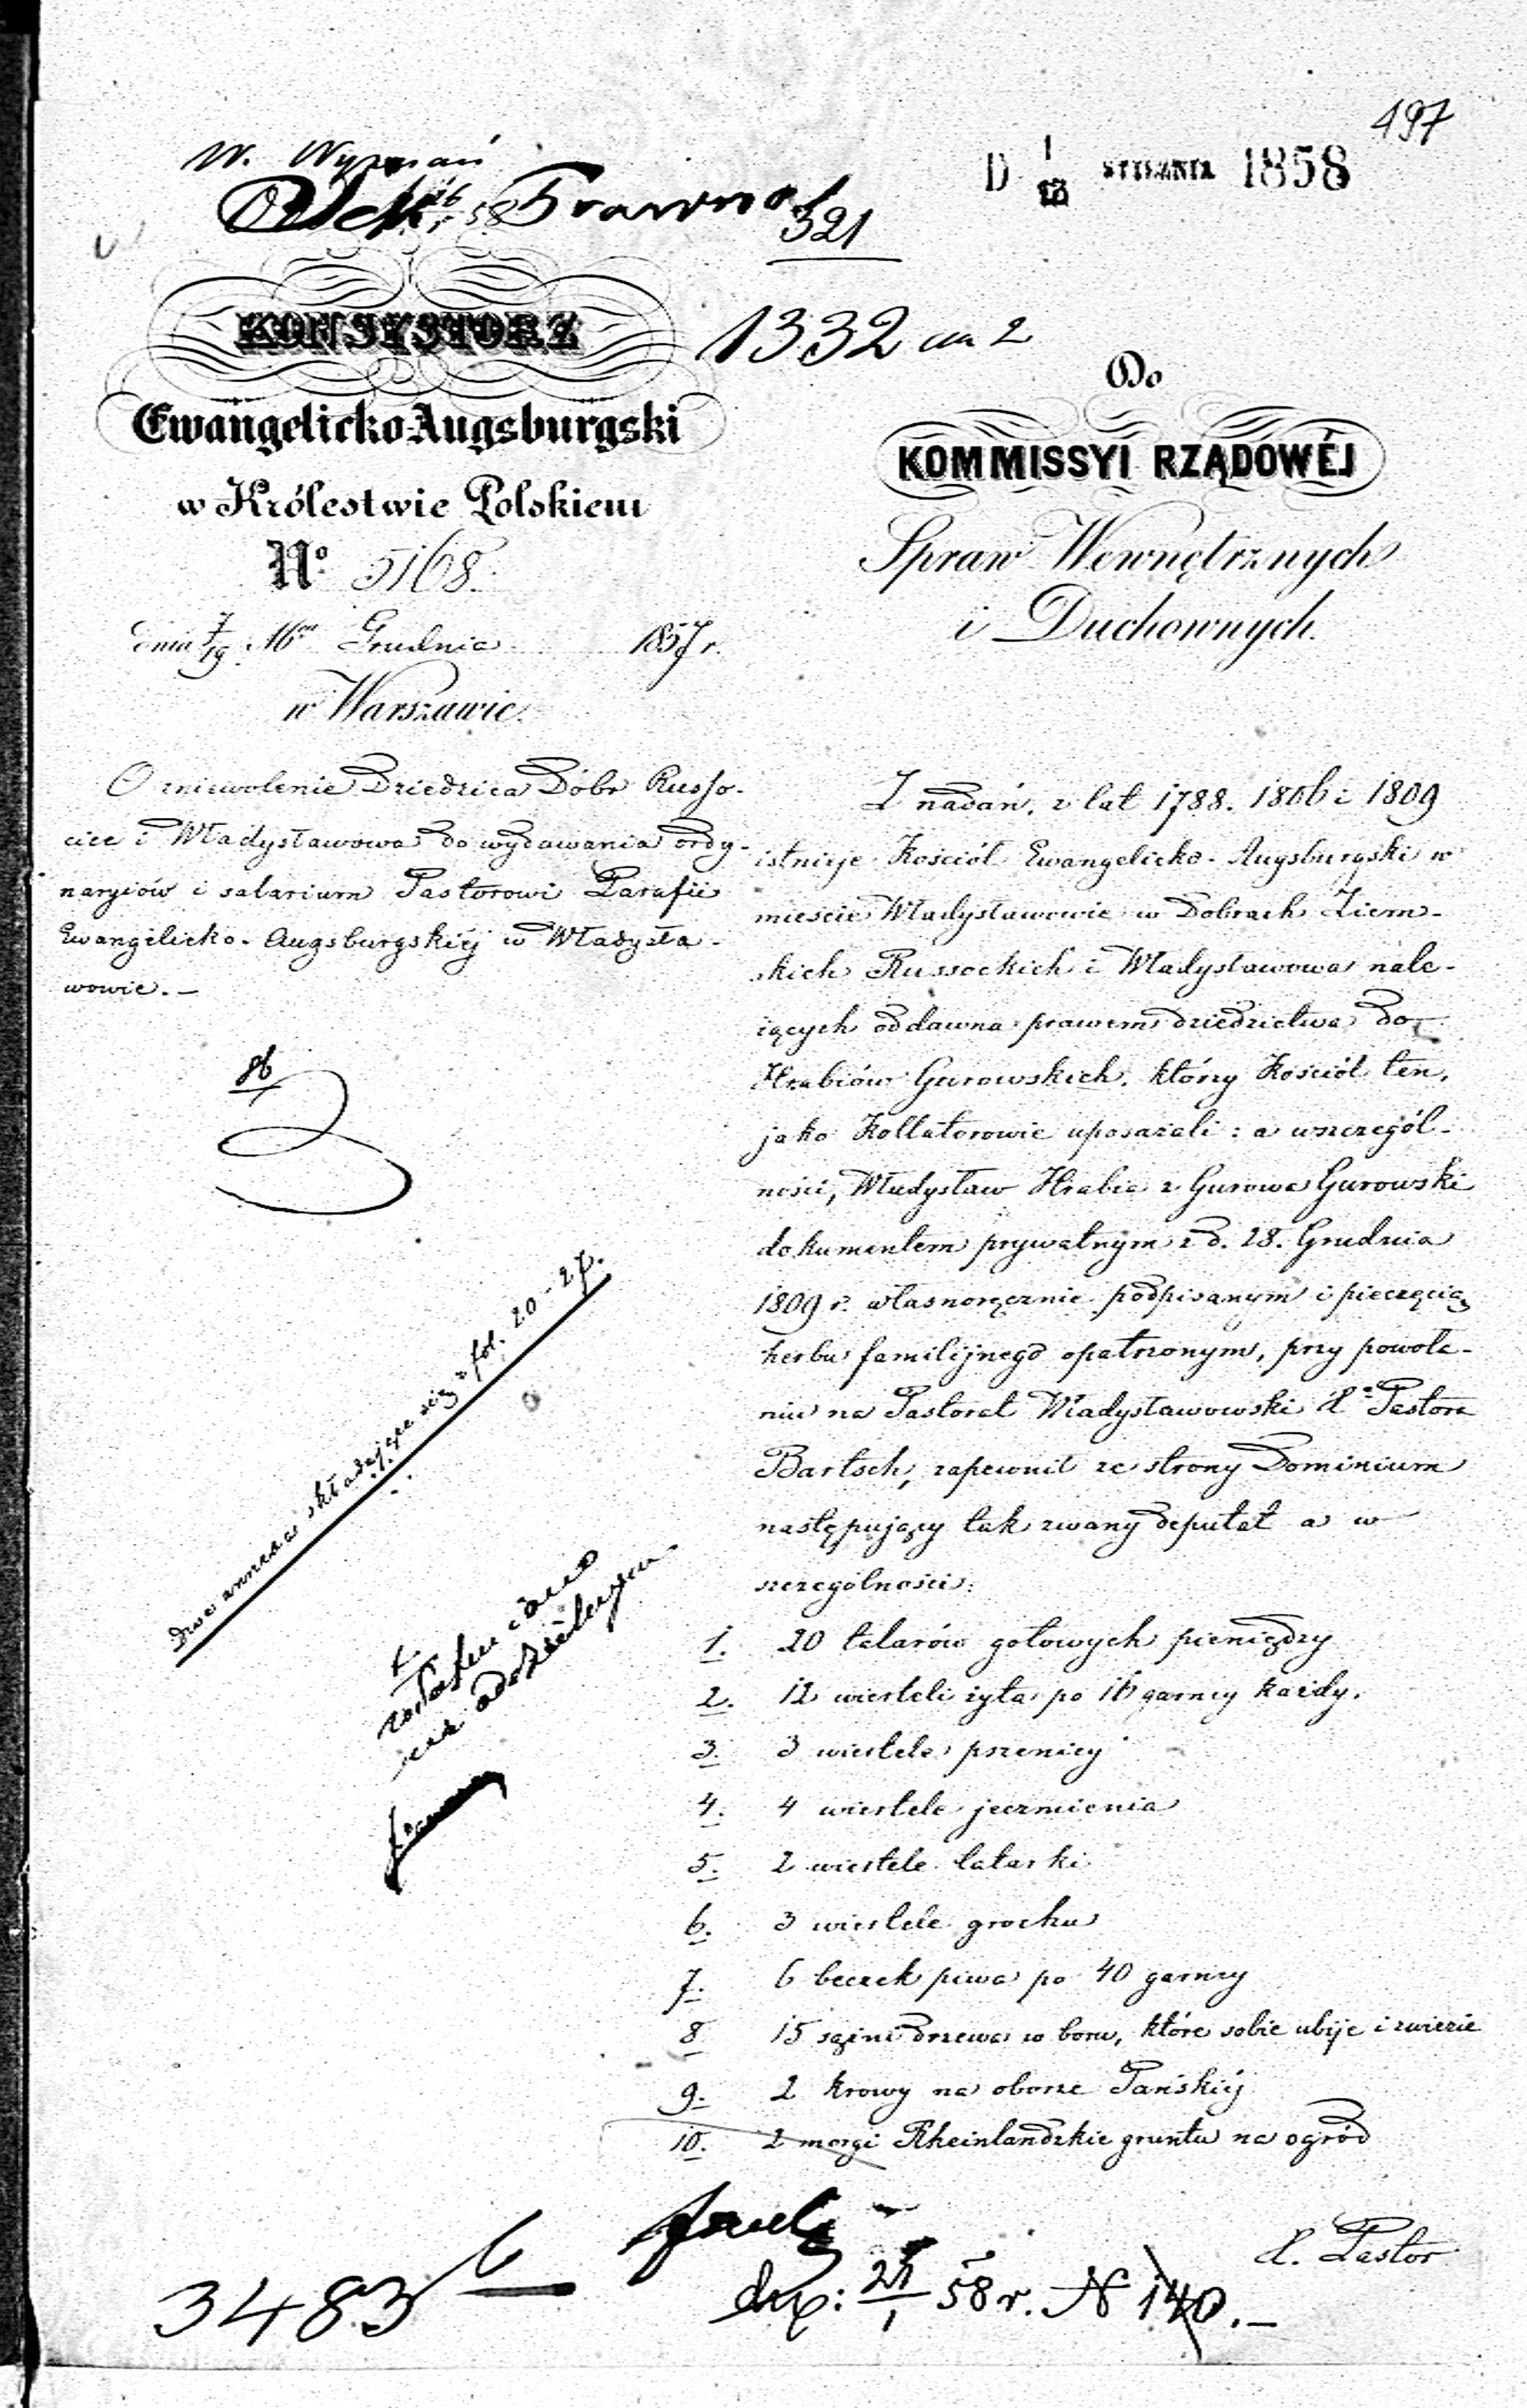 197
W. Wyznań
D 1/13 STYCZNIA 1858
321
KONSYSTORZ
1332
Ewangelicko-Augsburgski
w Królestwie Polskiem
Nº 5168.
dnia 7/19 Grudnia 1857 r.
w Warszawie.
Do
KOMMISSYI RZĄDOWÉJ
Spraw Wewnętrznych
i Duchownych.
O zniewolenie Dziedzica Dóbr Russo-
cice i Władysławowa do wydawania ordy-
naryiów i salarium Pastorowi Parafii
Ewangelicko-Augsburgskiéj w Władysła-
wowie. —
dwa annexa składające się z fol. 20-27.
Z nadań, z lat 1788. 1806 i 1809
istnieje Kościół Ewangelicko-Augsburgski w
mieście Władysławowie w Dobrach Ziem-
skich Russockich i Władysławowa nale-
żących oddawna prawem dziedzictwa do
Hrabiów Gurowskich, którzy Kościół ten,
jako Kollatorowie uposażali: a wszczegól-
ności, Władysław Hrabia z Gurowa Gurowski
dokumentem prywatnym z d. 28. Grudnia
1809 r. własnoręcznie podpisanym i pieczęcią
herbu familijnego opatrzonym, przy powoła-
niu na Pastorat Władysławowski X. Pastora
Bartsch, zapewnił ze strony Dominium
następujący tak zwany deputat a w
szczególności:
1. 20 talarów gotowych pieniędzy
2. 12 wierteli żyta po 16 garncy każdy.
3. 3 wiertele pszenicy
4. 4 wiertele jęczmienia
5. 2 wiertele tatarki
6. 3 wiertele grochu
7. 6 beczek piwa po 40 garncy
8 15 sążni drzewa w boru, które sobie ubije i zwiezie
9. 2 krowy na oborze Pańskiéj
10. 2 morgi Rheinlandzkie gruntu na ogród
X. Pastor
3483
58 r. N 140. —